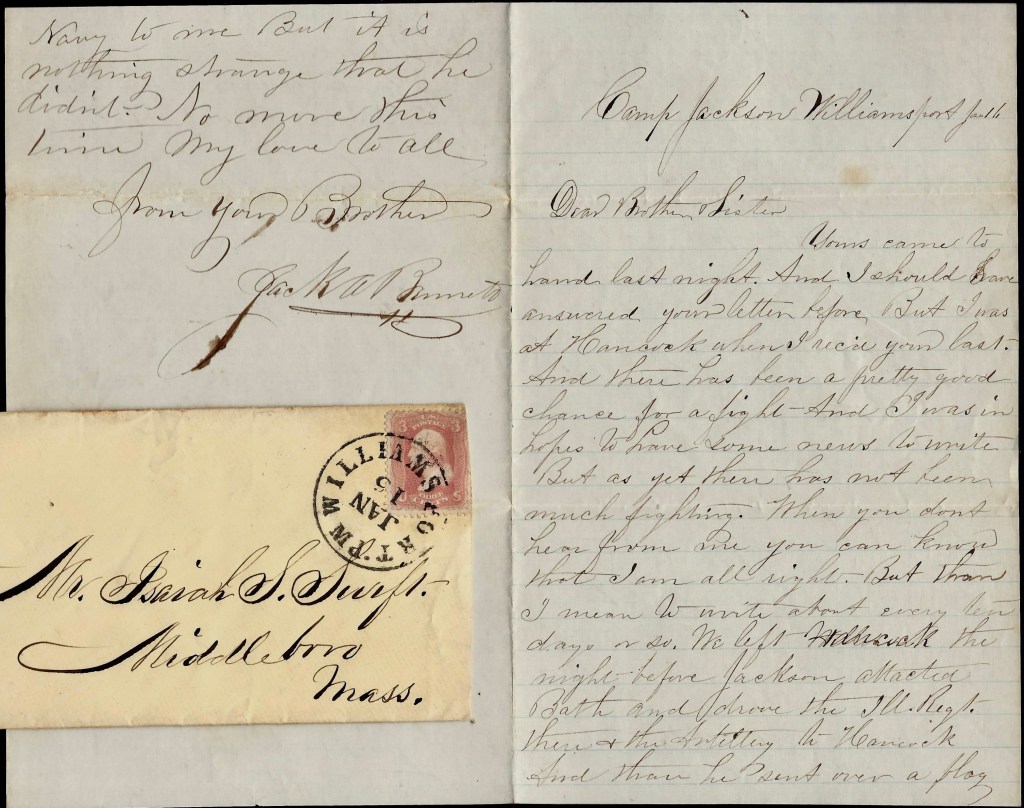 Navy to me But it is
nothing strange that he
didnt - No more this
time My love to all
From your Brother
Jack A Burnett
Camp Jackson Williamsport Jan 16
Dear Brother & Sister
Yours came to
hand last night. And I should have
answered your letter before, But I was
at Hancock when I rec'd your last.
And there has been a pretty good
chance for a fight - And I was in
hopes to have some news to write
But as yet there has not been
much fighting. When you dont
hear from me you can know
that I am all right. But than
I mean to write about every ten
days or so. We left Hancock the
night before Jackson attacted
Bath and drove the Ill. Regt.
there & the Artillery to Hancock
And than he sent over a flag
3 U.S. POSTAGE 3
THREE CENTS
WILLIAMSPORT
JAN
15
Mr. Isaiah S. Swift.
Middleboro
Mass.